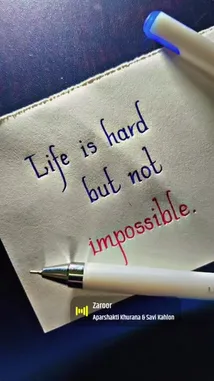 Life is hard
but not
impossible.
Zaroor
Aparshakti Khurana & Savi Kahlon